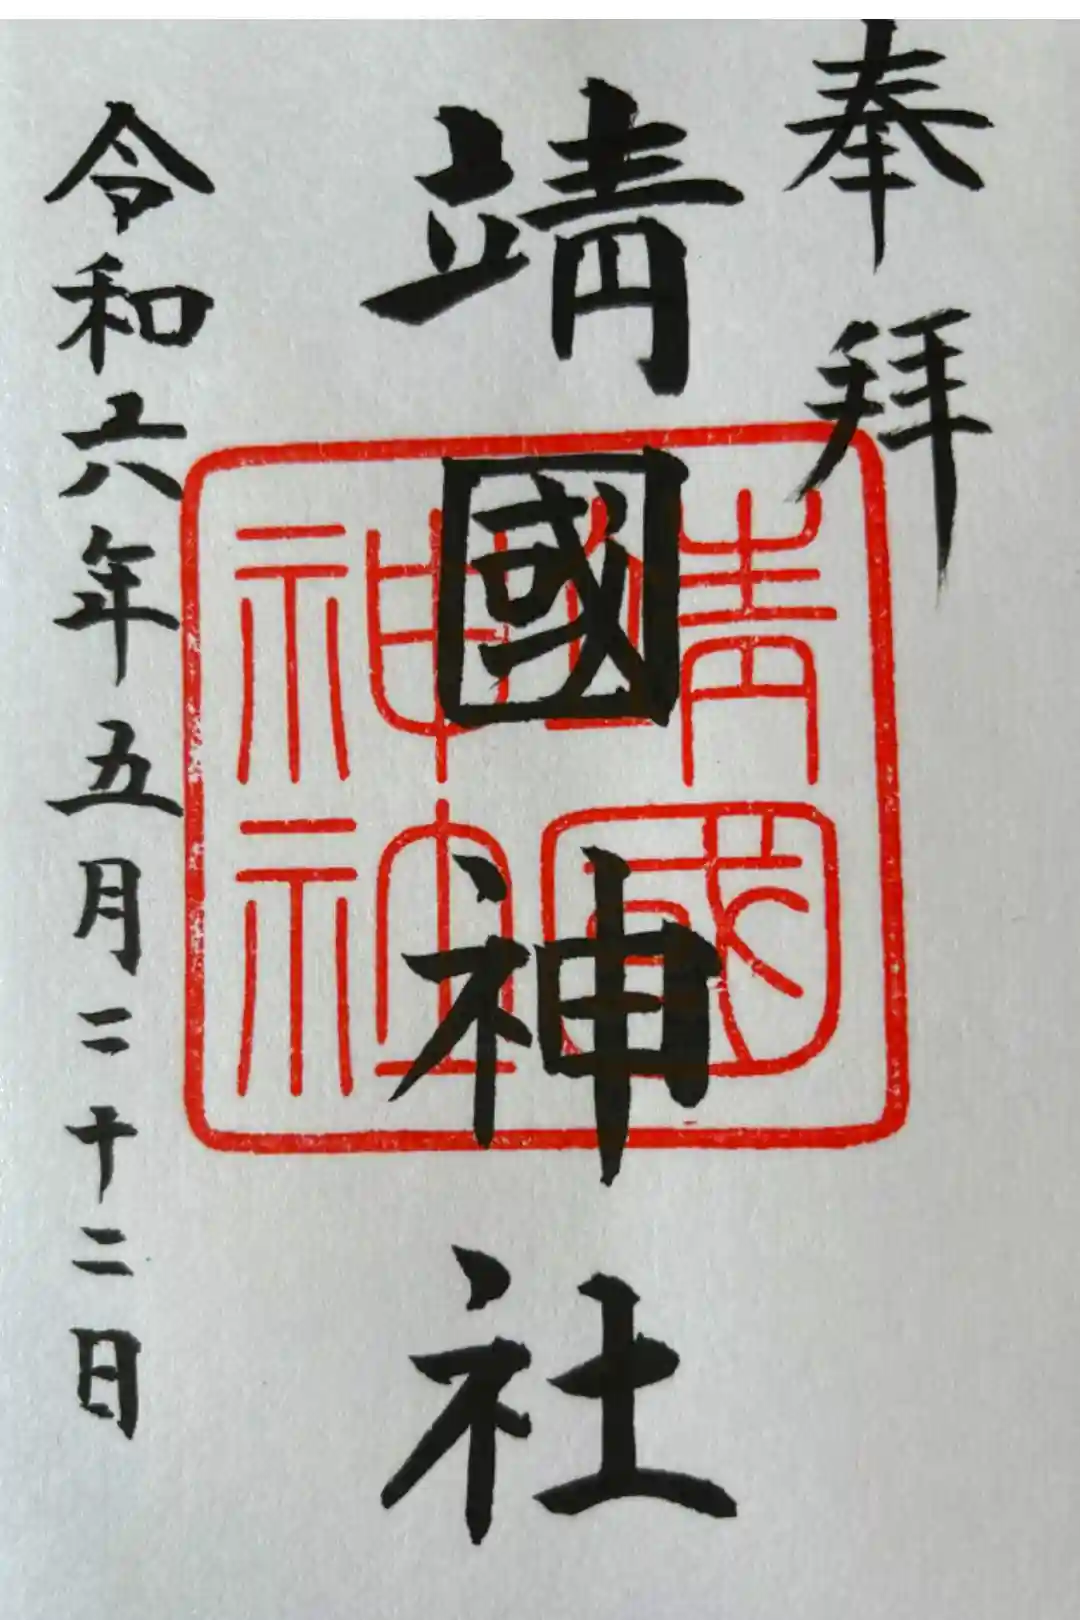 奉拝
靖國神社
靖國神社
令和六年五月二十二日